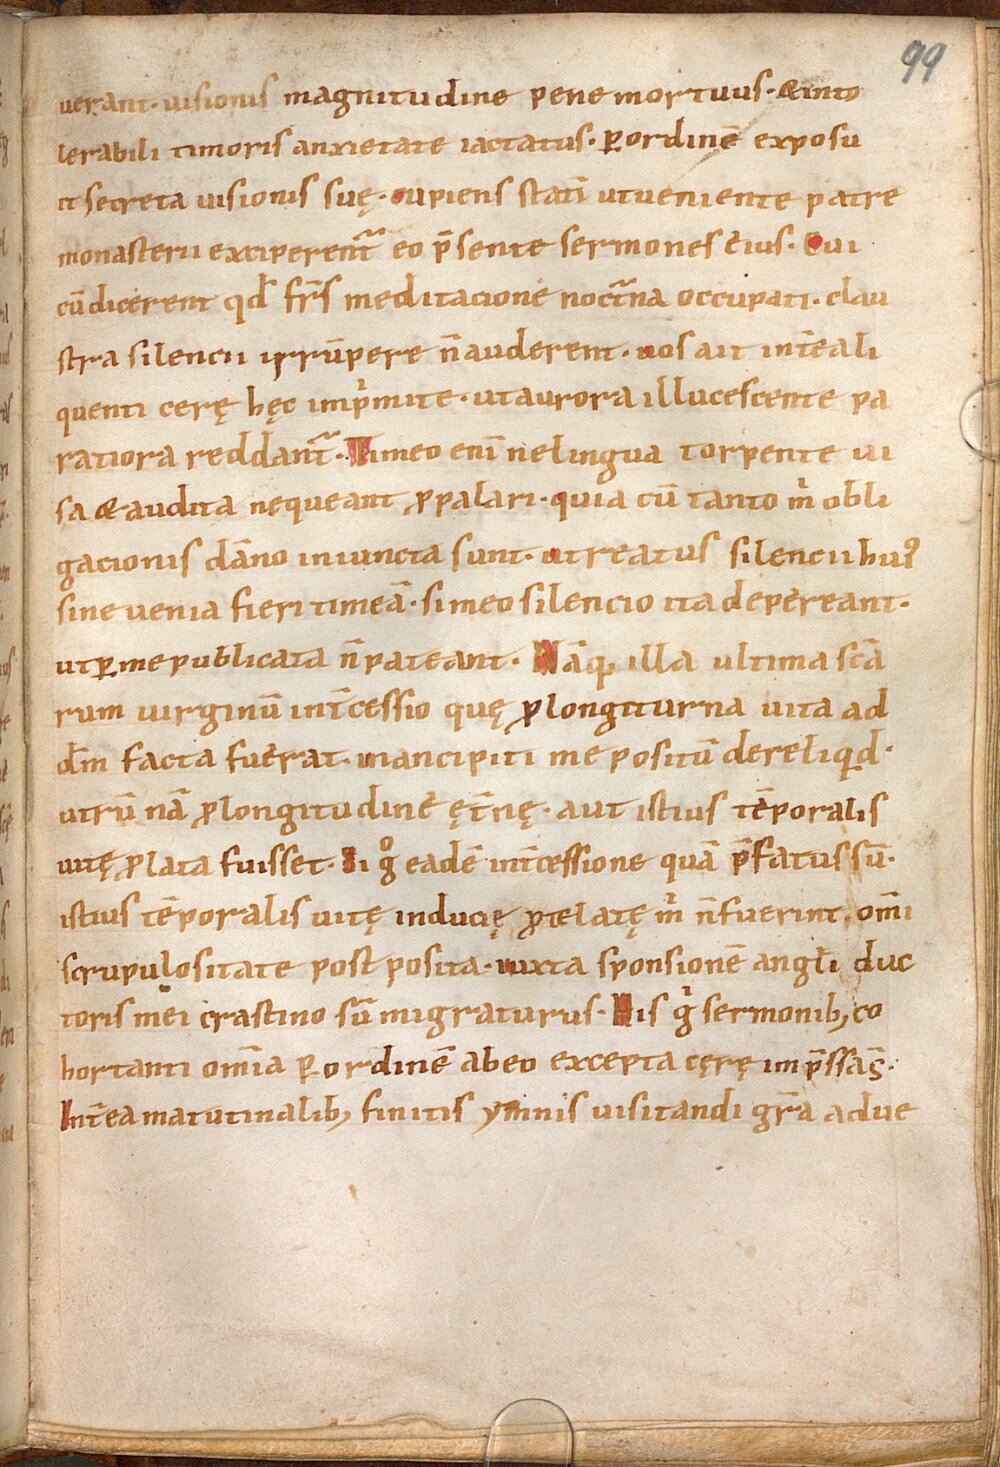 99
uerant· uisionis magnitudine pene mortuus· & into
lerabili timoris anxietate iactatus· ꝑ ordinē exposu
it secreta uisionis suę· cupiens statī ut ueniente patre
monasterii exciperent᷑ eo p̄sente sermones eius· Qui
cū dicerent qđ fr̄s meditacione noct᷑na occupati· clau
stra silencii irrūpere n̄ auderent· uos ait int̄ea li
quenti cerę hęc imp̍mite· ut aurora illucescente pa
ratiora reddant᷑· Timeo enī ne lingua torpente ui
sa & audita nequeant ꝓpalari· quia cū tanto m̍ obli
gacionis dāno iniuncta sunt· ut reatus silencii huꝰ
sine uenia fieri timeā· si meo silencio ita depereant·
ut ꝑ me publicata n̄ pateant· Nāq; illa ultima scā
rum uirginū int̄cessio quę ꝓlongiturna uita ad
dm̄ facta fuerat· in ancipiti me positū dereliqͥd·
utrū nā ꝓlongitudine ęt̄nę· aut istius tēporalis
uitę ꝓlata fuisset· Si gͦ eadē int̄cessione quā p̄fatus sū·
istius tēporalis uitę inducię ꝓtelatę m̍ n̄ fuerint· om̄i
scrupulositate post posita· iuxta sponsionē angl̄i duc
toris mei crastino sū migraturus· His g̍ sermonib; co
hortanti om̄ia ꝑ ordinē ab eo excepta cęrę imp̄ssa s̄·
Int̄ea matutinalib; finitis ymnis uisitandi gr̄a adue